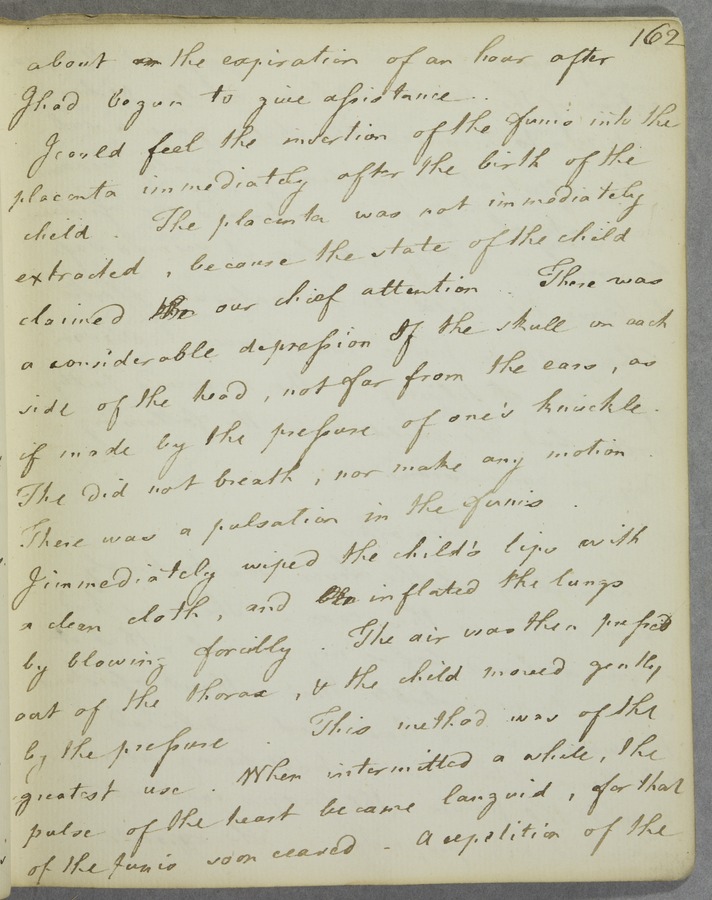 162
about the expiration of an hour after
I had begun to give assistance.
I could feel the insertion of the funis into the
placenta immediately after the birth of the
child. The placenta was not immediately
extracted, because the state of the child
claimed our chief attention. There was
a considerable depression of the skull on each
side of the head, not far from the ears, as
if made by the pressure of one's knuckle.
The did not breath, nor make any motion.
There was a pulsation in the funis.
I immediately wiped the child's lips with
a clean cloth, and inflated the lungs
by blowing forcibly. The air was then pressed
out of the thorax, & the child moved gently
by the pressure. This method was of the
greatest use. When intermitted a while, the
pulse of the heart became languid, for that
of the funis soon ceased - A repetition of the